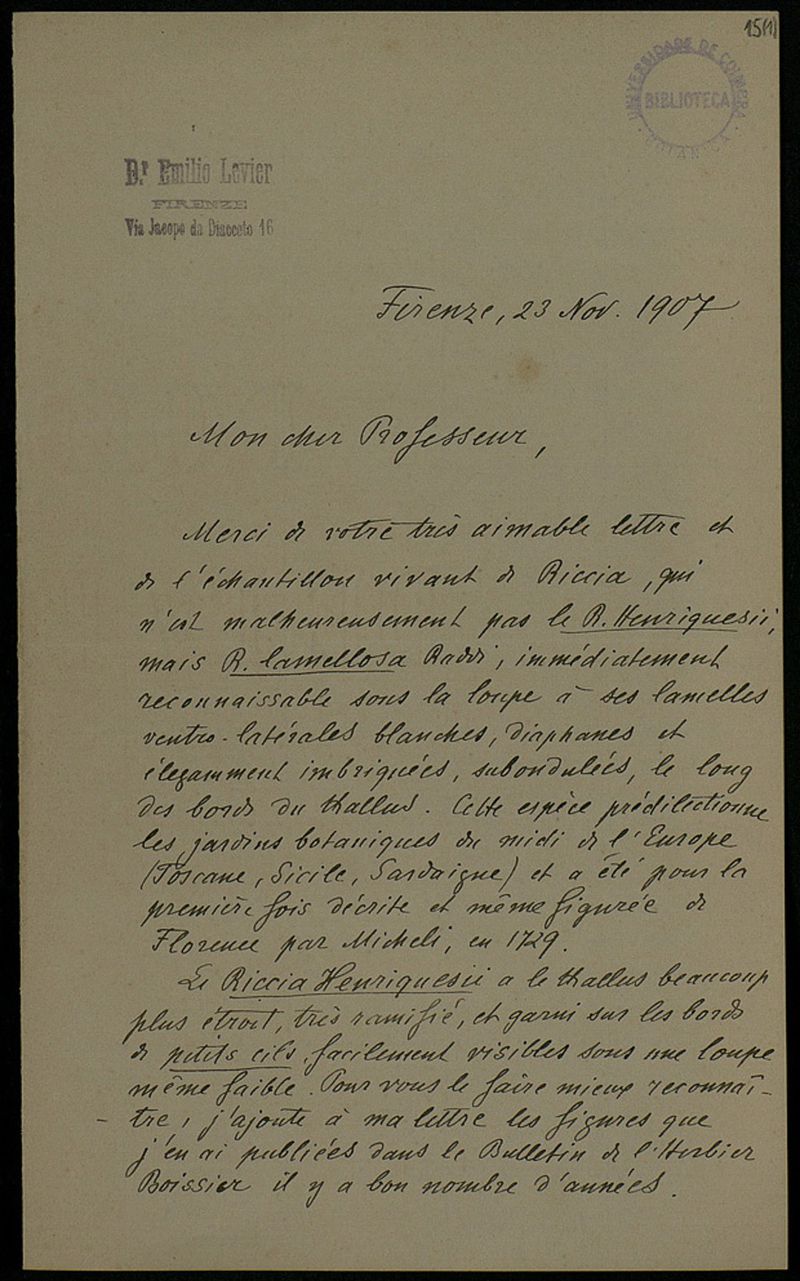 15(1)
UNIVERSIDADE DE COIMBRA
BIBLIOTECA
BOTANICA
Dr Emilio Levier
FIRENZE
Via Jacopo da Diacceto 16
Firenze, 23 Nov. 1907
Mon cher Professeur,
Merci de votre très aimable lettre et
de l'échantillon vivant de Riccia, qui
n'est malheureusement pas le R. Henriquesii,
mais R. lamellosa Raddi, immédiatement
reconnaissable sous la loupe à ses lamelles
ventro-latérales blanches, diaphanes et
élegamment imbriquées, subondulées, le long
des bords du thallus. Cette espèce prédilectionne
les jardins botaniques du midi de l'Europe
(Toscane, Sicile, Sardaigne) et a été pour la
première fois décrite et même figurée de
Florence par Micheli, en 1729.
Le Riccia Henriquesii a le thallus beaucoup
plus étroit, très ramifié, et garni sur les bords
de petits cils, facilement visibles sous une loupe
même faible. Pour vous le faire mieux reconnaî-
tre, j'ajoute à ma lettre les figures que
j'en ai publiées dans le Bulletin de l'Herbier
Boissier il y a bon nombre d'années.